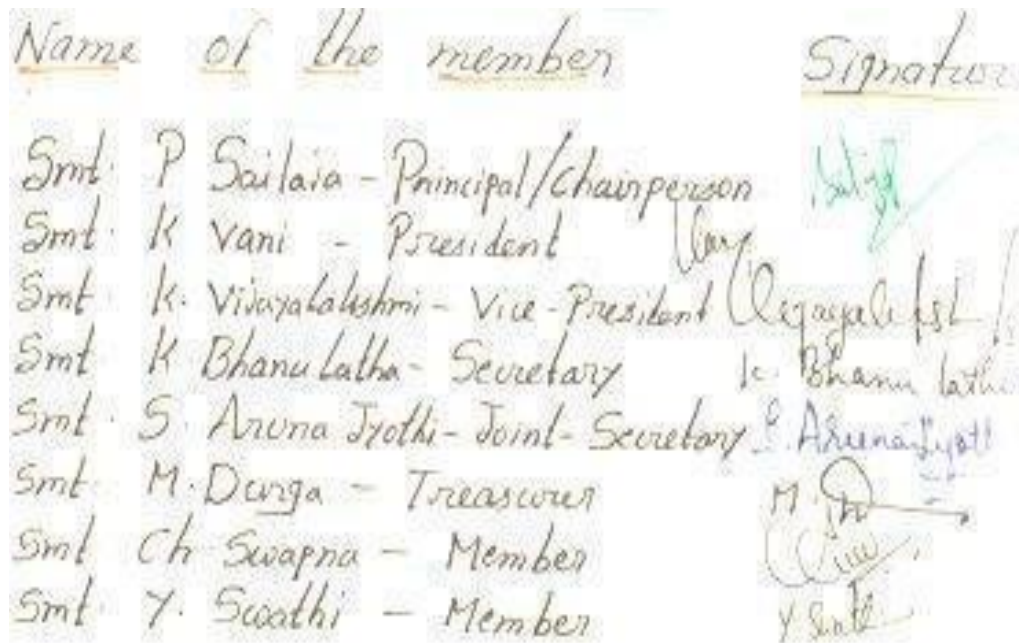 Name of the member Signature
Smt. P Sailaja - Principal/Chairperson
Smt. K Vani - President Vani
Smt. K. Vijayalakshmi - Vice-President
Smt. K Bhanu latha - Secretary K. Bhanu latha
Smt. S. Aruna Jyothi - Joint - Secretary S. Aruna Jyoti
Smt. M. Durga - Treasurer M.
Smt. Ch Swapna - Member
Smt. Y. Swathi - Member Y